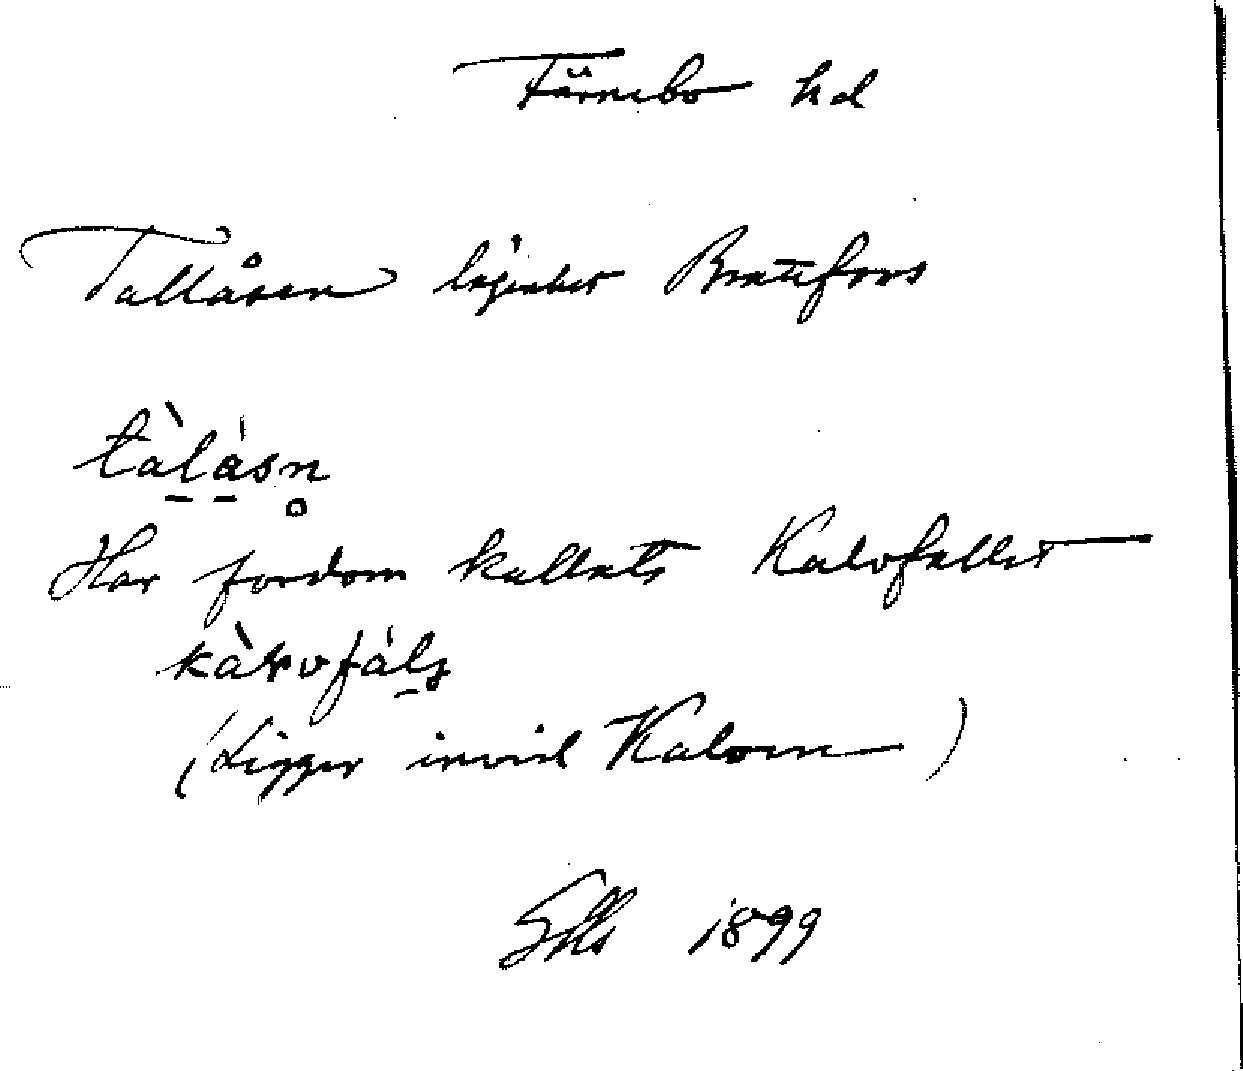 Färnebo hd
Tallåsen lägenhet Brattfors
tàlåsn̥
Har fordom kallats Kalvfallet
kàlvfál
(Ligger invid Kalven)
1899